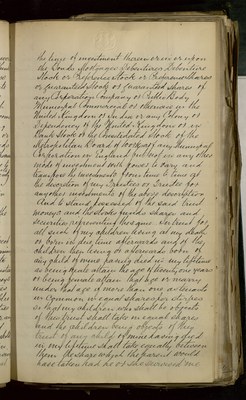 the time of investment thereon or in or upon
the Bonds Mortgages Debentures Debenture
Stock or Preference Stock or Preference Shares
or Guaranteed Stock or Guaranteed Shares of
any Corporation Company or Public Body
Municipal Commercial or otherwise in the
United Kingdom or in India or any Colony or
Dependency of the United Kingdom or in
Bank Stock or the Consolidated Stock of the
Metropolitan Board of Works or of any Municipal
Corporation in England but not in any other
mode of investment with power to vary or
transpose the investments from time to time at
the discretion of my Trustees or Trustee for
any other investments of the above description
And to stand possessed of the said trust
moneys and the stocks funds shares and
securities representing the same In trust for
all such of my children living at my death
or born in due time afterwards and of the
children then living or afterwards born of
any child of mine having died in my lifetime
as being male attain the age of twenty one years
or being female attain that age or marry
under that age if more than one as tenants
in Common in equal shares per stirpes
so that my children who shall be objects
of this trust shall take in equal shares
and the children being objects of this
trust of any child of mine having died
in my lifetime shall take equally between
them the share which the parent would
have taken had he or she survived me